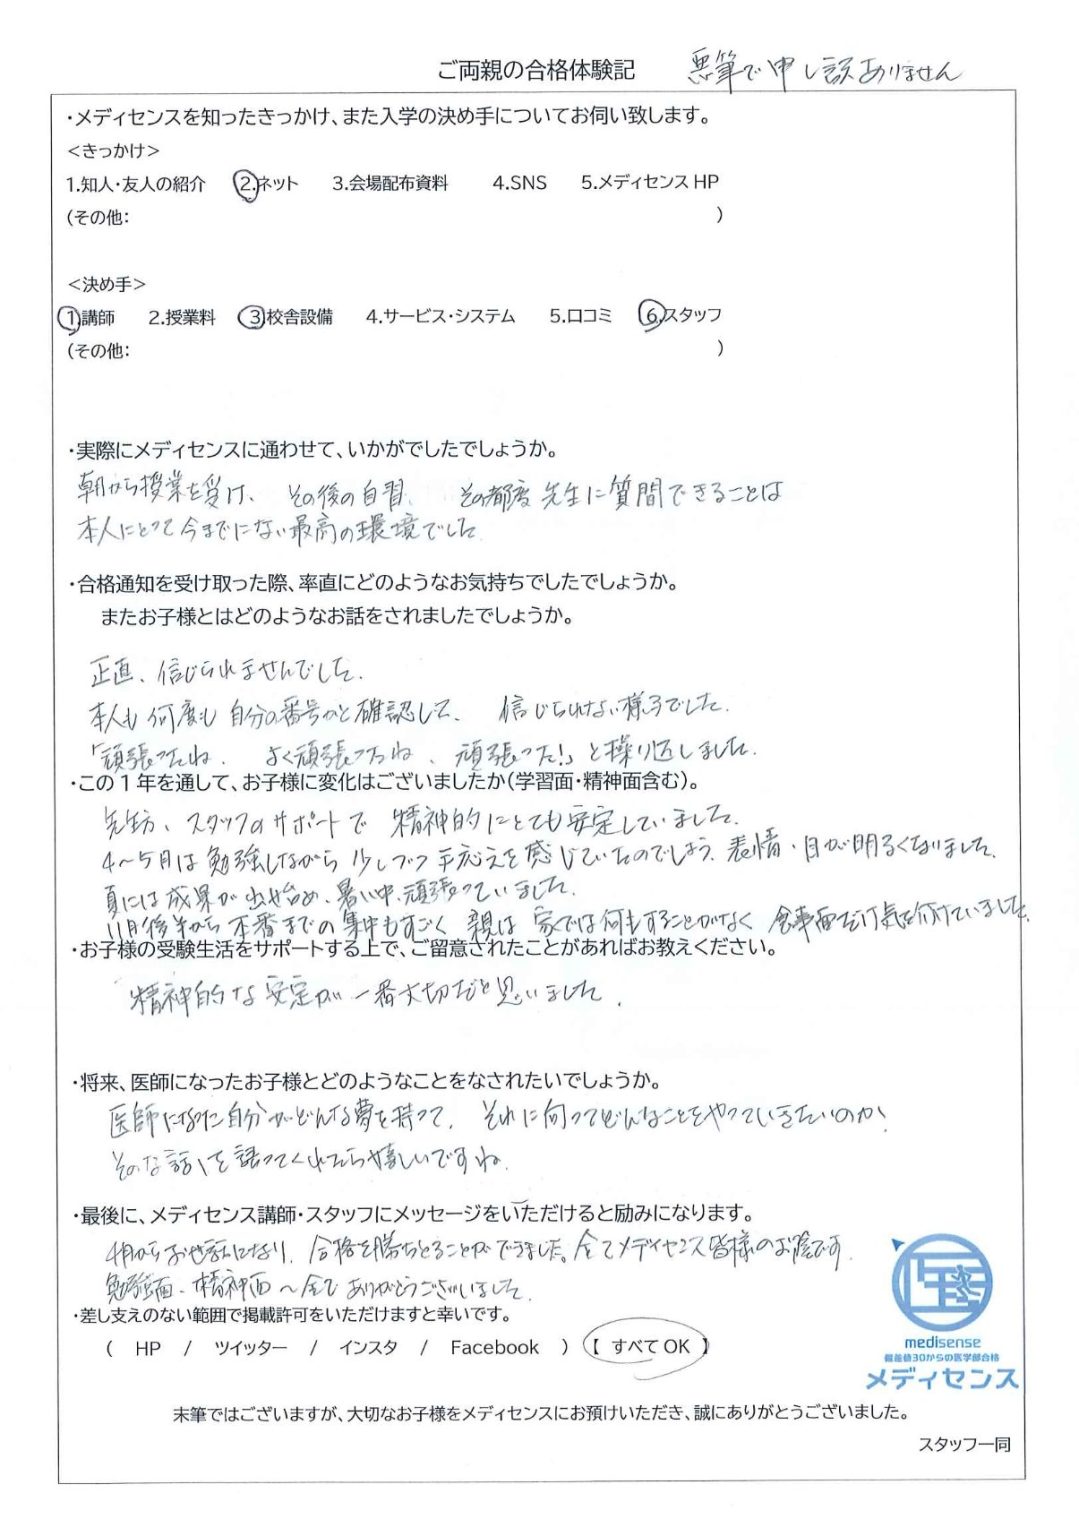 ご両親の合格体験記 悪筆で申し訳ありません
・メディセンスを知ったきっかけ、また入学の決め手についてお伺い致します。
<きっかけ>
1.知人・友人の紹介 2.ネット 3.会場配布資料 4.SNS 5.メディセンス HP
(その他: )
<決め手>
1.講師 2.授業料 3.校舎設備 4.サービス・システム 5.口コミ 6.スタッフ
(その他: )
・実際にメディセンスに通わせて、いかがでしたでしょうか。
朝から授業を受け、その後の自習、その都度先生に質問できることは
本人にとって今までにない最高の環境でした
・合格通知を受け取った際、率直にどのようなお気持ちでしたでしょうか。
またお子様とはどのようなお話をされましたでしょうか。
正直、信じられませんでした。
本人も何度も自分の番号かと確認して、信じられない様子でした。
「頑張ったね、よく頑張ったね、頑張った!」と繰り返しました。
・この1年を通して、お子様に変化はございましたか(学習面・精神面含む)。
先生方、スタッフのサポートで精神的にとても安定していました。
4〜5月は勉強しながら少しづつ手応えを感じていたのでしょう、表情・目が明るくなりました。
夏には成果が出始め、暑い中、頑張っていました。
11月後半から本番までの集中もすごく親は家では何もすることがなく食事面だけ気を付けていました。
・お子様の受験生活をサポートする上で、ご留意されたことがあればお教えください。
精神的な安定が一番大切だと思いました。
・将来、医師になったお子様とどのようなことをなされたいでしょうか。
医師になった自分がどんな夢を持って、それに向ってどんなことをやっていきたいのか!
そんな話を語ってくれたら嬉しいですね。
・最後に、メディセンス講師・スタッフにメッセージをいただけると励みになります。
4月からお世話になり、合格を勝ちとることができました。全てメディセンス皆様のお陰です。
勉強面、精神面〜全てありがとうございました。
・差し支えのない範囲で掲載許可をいただけますと幸いです。
( HP / ツイッター / インスタ / Facebook ) 【 すべて OK 】
医
medisense
偏差値30からの医学部合格
メディセンス
末筆ではございますが、大切なお子様をメディセンスにお預けいただき、誠にありがとうございました。
スタッフ一同